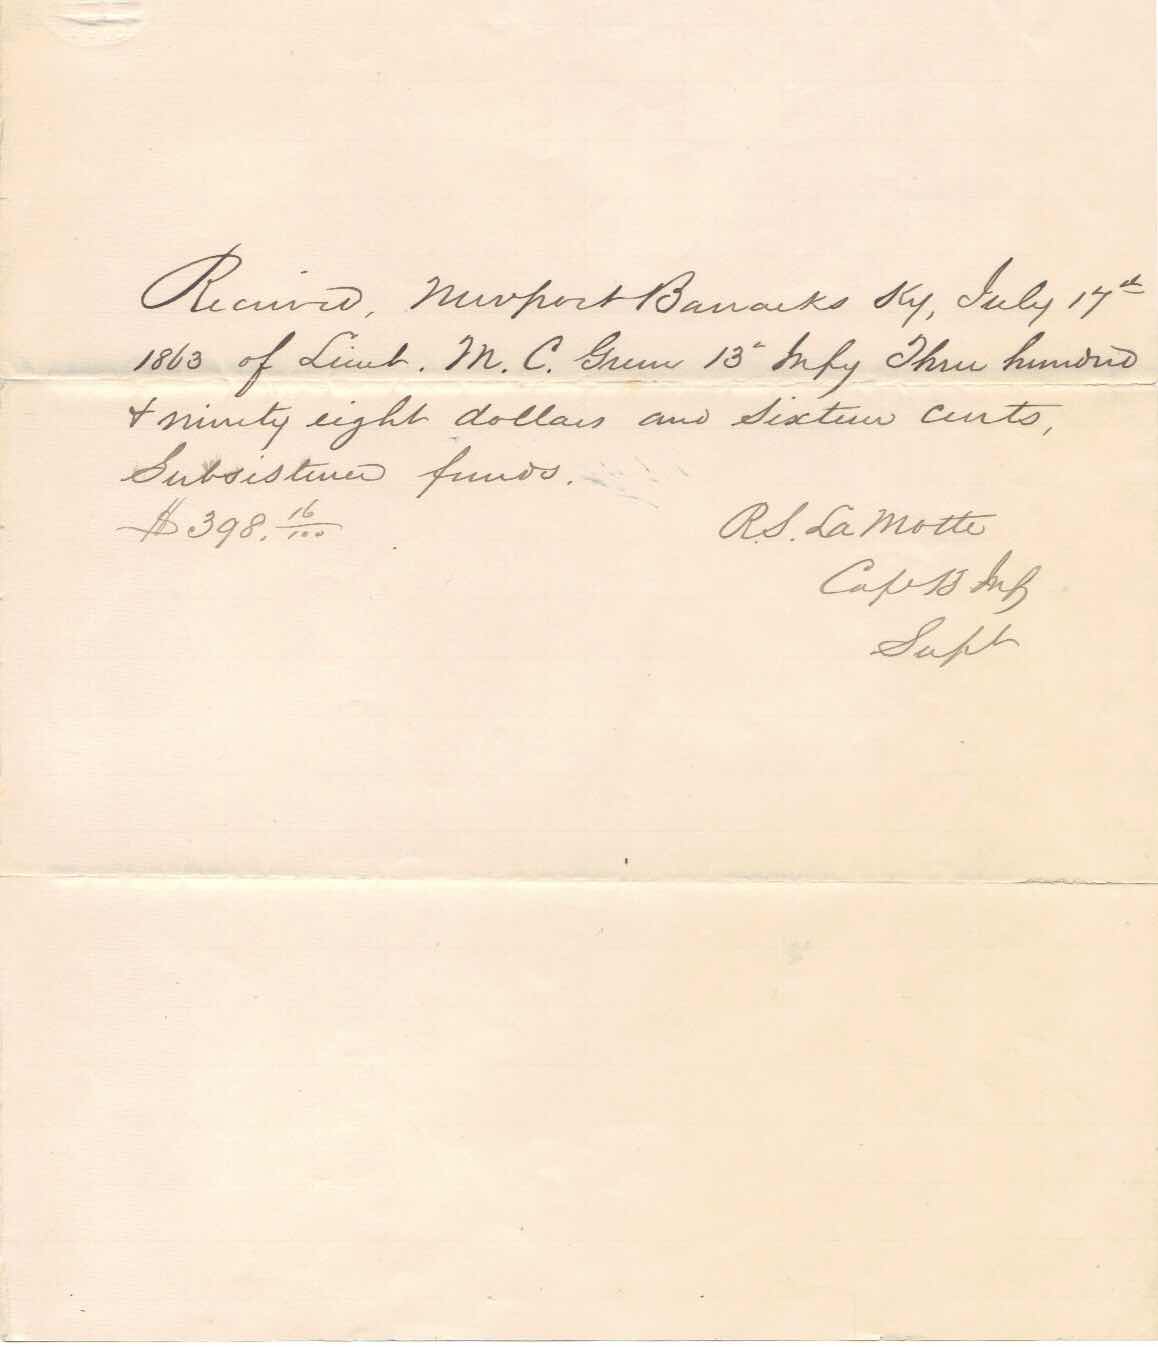 Received, Newport Barracks Ky, July 17th
1863 of Lieut. M. C. Green 13th Infy Three hundred
& ninety eight dollars and sixteen cents,
Subsistence funds.
$398. 16/100
R.S. La Motte
Capt 13 Inf
Supt